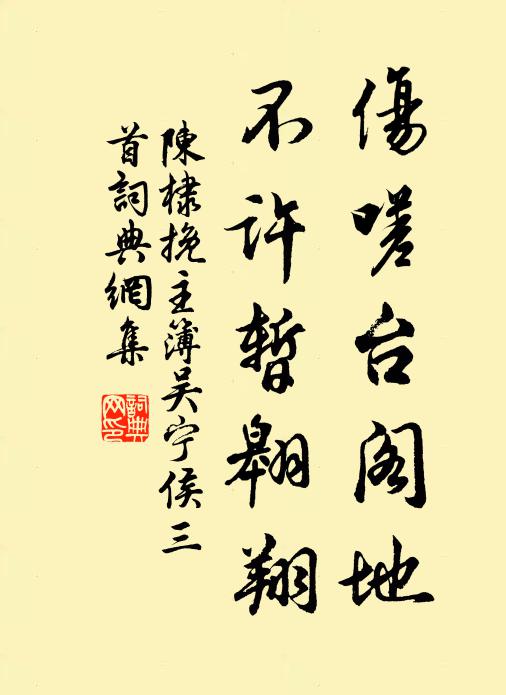 傷嗟台阁地
不许暫翱翔
陳棣挽主簿吴宁侯三
首詞典網集
詞典
网印